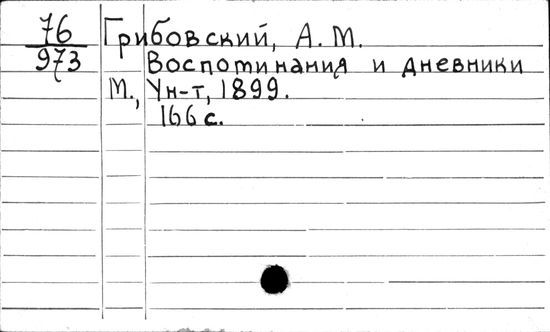 76
973
Грибовский, А. М.
Воспоминания и дневники
М., Ун-т, 1899.
166 с.